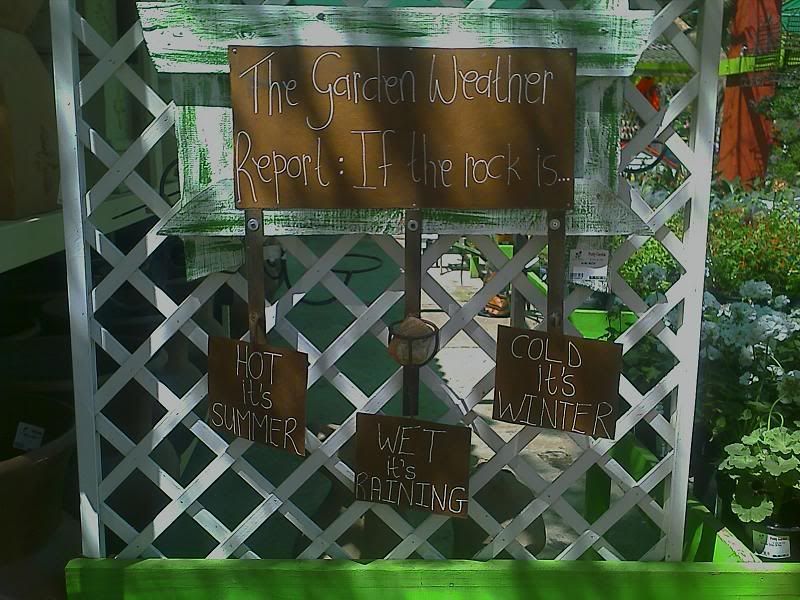 The Garden Weather
Report: If the rock is...
HOT
it's
SUMMER
WET
it's
RAINING
COLD
It's
WINTER